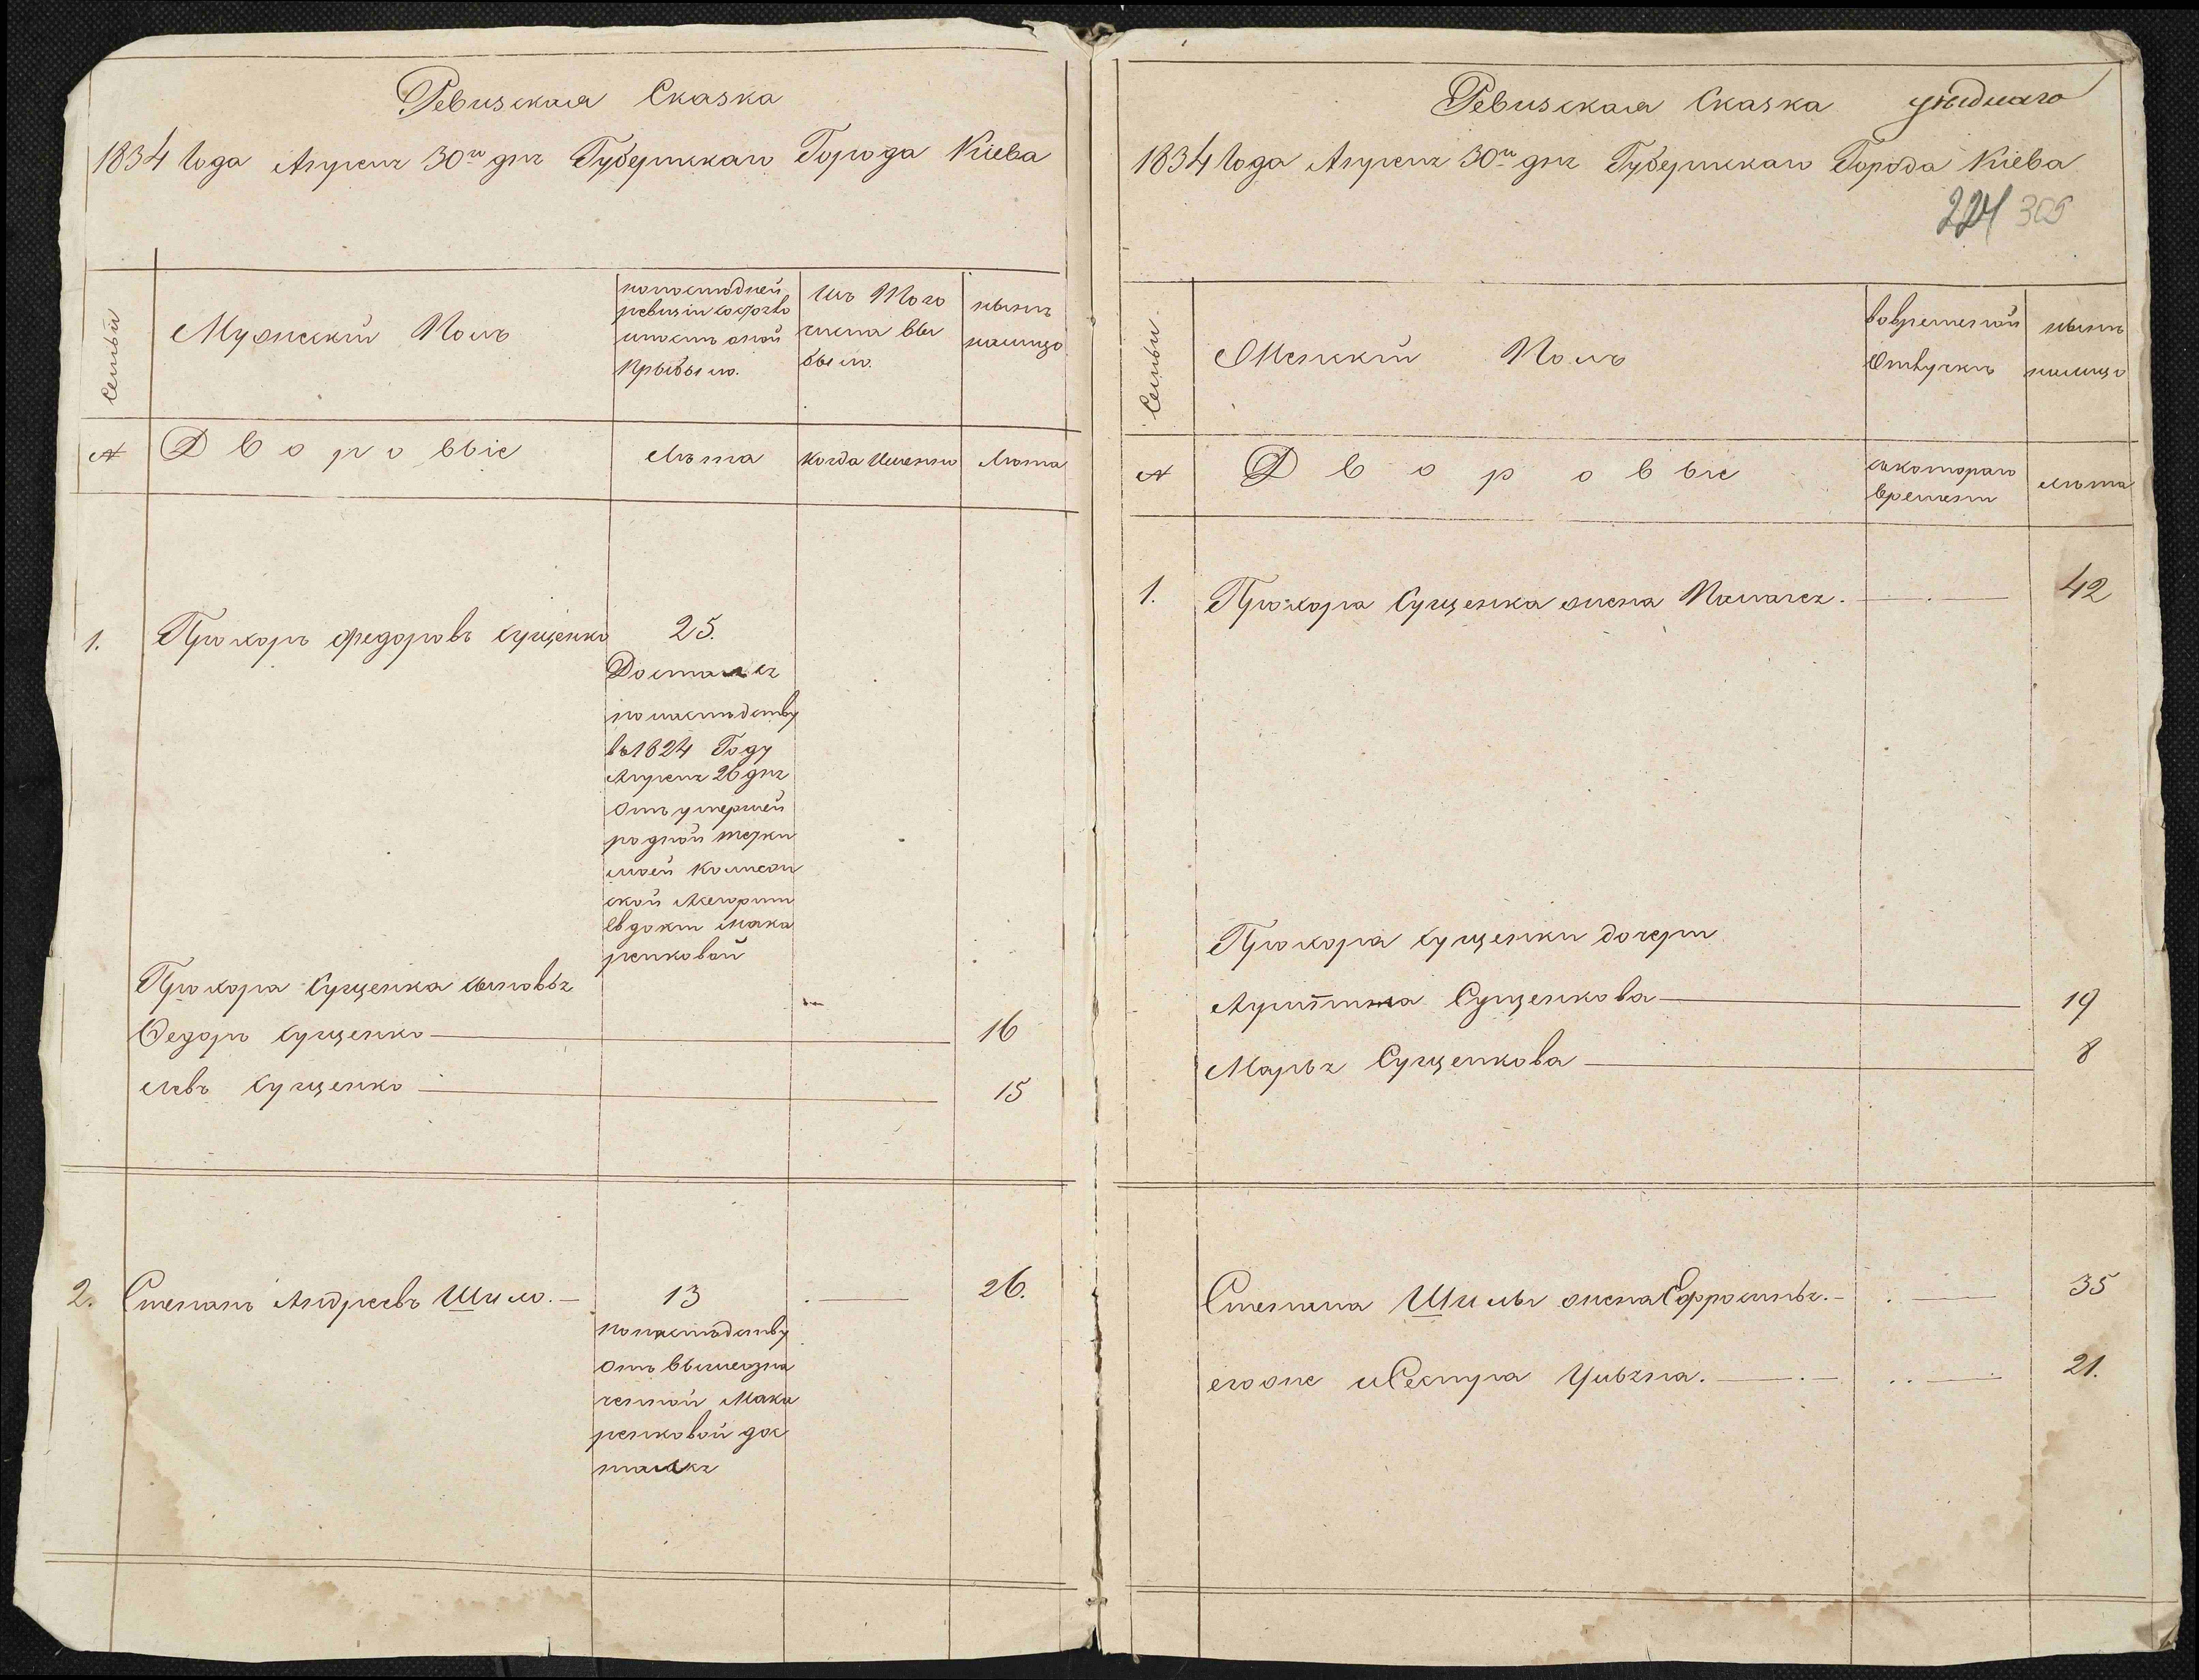 Ревизская Сказка
1834 Года Апреля 30го дня Губернскаго Города Киева
Семьи
Мужеский Полъ
попоследней
ревизии состояло
ипосле оной
Прыбыло.
Изъ Того
числа вы
было.
ныне
налицо
№
Дворовые
Лета
Когда Именно
Лета
1.
Прохоръ Федоровъ Сущенко
25.
Достался
понаследству
въ1824 Году
Апреля 26 дня
Отъ умершей
родной тетки
моей Коллеж
ской Асесорши
Евдокии Мака
ренковой
Прохора Сущенка сыновья
Федоръ Сущенко
16
Левъ Сущенко
15
2.
Степанъ Андреевъ Шило.
13
26.
понаследству
Отъ вышеозна
ченной Мака
ренковой дос
тался
Ревизская Сказка уезднаго
1834 Года Апреля 30го дня Губернскаго Города Киева
224 305
Семьи
Женский Полъ
вовременной
Отлучке
ныне
налицо
№
Дворовые
скотораго
времени
Лета
1.
Прохора Сущенка жена Пелагея.
42
Прохора Сущенки дочери
Сущенкова
19
Марья Сущенкова
8
Степана Шилы жена Ефросинья.
35
егоже иСестра Ульяна.
21.